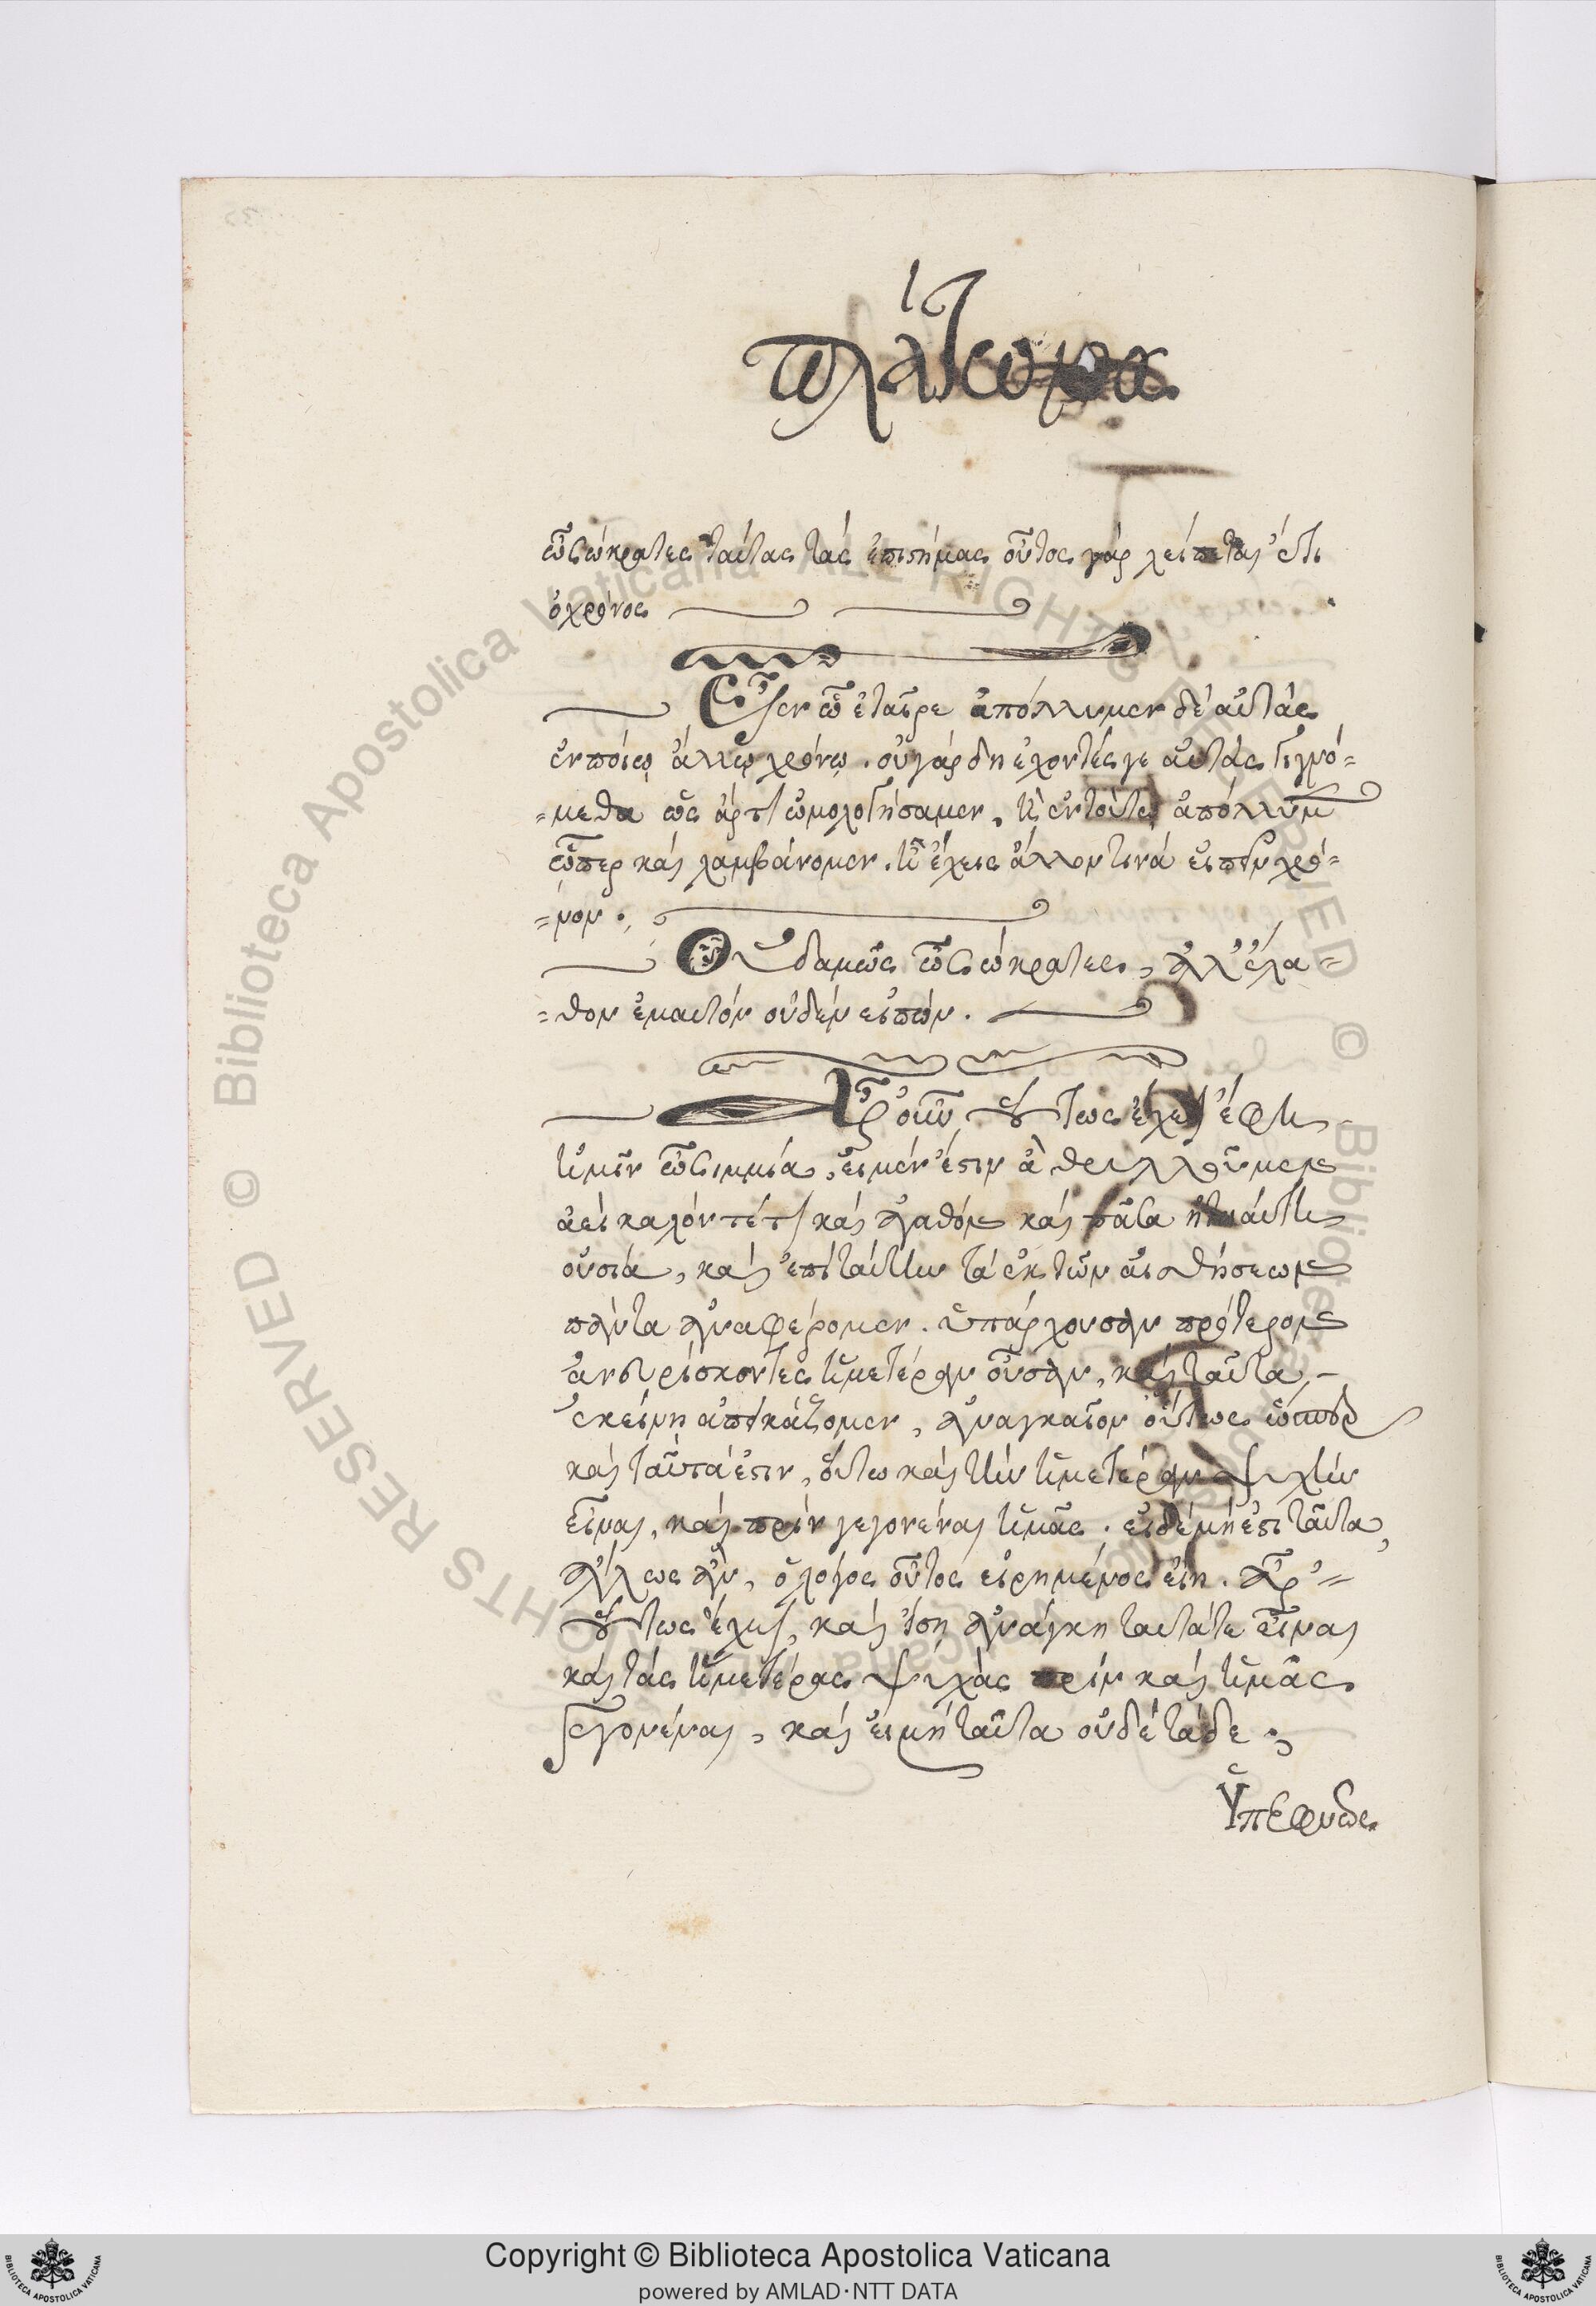 πλάτωνος
ὦ σώκρατες ταύτας τάς ἐπιστήμας οὗτος γάρ λείπεται ἔτι
ὁ χρόνος
Εἶεν ὦ ἑταῖρε ἀπόλλυμεν δέ αὐτάς
ἐν ποίῳ ἄλλῳ χρόνῳ. οὐ γάρ δη ἔχοντές γε αὐτάς γιγνό=
=μεθα ὡς ἄρτι ὡμολογήσαμεν, ἢ ἐν τούτῳ ἀπόλλυμ
ᾧπερ καί λαμβάνομεν. ἢ ἔχεις ἄλλον τινά εἰπεῖν χρό=
=νον;
Οὐδαμῶς ὦ σώκρατες, ἀλλ' ἔλα=
=θον ἐμαυτόν οὐδέν εἰπών.
Ἆρ' οὖν οὕτως ἔχει ἔφη
ἡμῖν ὦ σιμμία, εἰ μέν ἔστιν ἃ θρυλλοῦμεν
ἀεί καλόν τέ τι καί ἀγαθόν καί πᾶσα ἡ τοιαύτη
οὐσία, καί ἐπί ταύτην τά ἐκ τῶν αἰσθήσεων
πάντα ἀναφέρομεν. ὑπάρχουσαν πρότερον
ἀνευρίσκοντες ἡμετέραν οὖσαν, καί ταῦτα
ἐκείνη ἀπεικάζομεν, ἀναγκαῖον οὕτως ὥσπερ
καί ταῦτα ἔστιν, οὕτω καί τήν ἡμετέραν ψυχήν
εἶναι, καί πρίν γεγονέναι ἡμᾶς. εἰ δέ μή ἐστι ταῦτα,
ἄλλως ἄν, ὁ λόγος οὗτος εἰρημένος εἴη. ἆρ'=
οὕτως ἔχει, καί ἴση ἀνάγκη ταῦτά τε εἶναι
καί τάς ἡμετέρας ψυχὰς πρίν καί ἡμᾶς
γεγονέναι, καί εἰ μή ταῦτα οὐδέ τάδε;
Ὑπερφυῶς
Copyright © Biblioteca Apostolica Vaticana
powered by AMLAD·NTT DATA